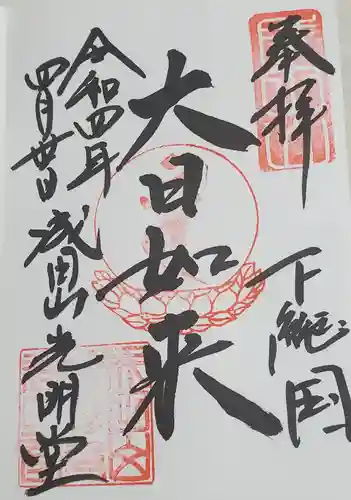 奉拝
下総国
大日如来
令和四年
四月廿日
成田山光明堂